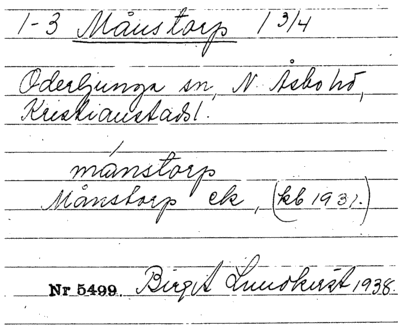 1-3 Månstorp 1 3/4
Oderljunga sn, N. Åsbo hd,
Kristianstads l.
månstorp
Månstorp ek, (kb 1931.)
Nr 5499. Birgit Lundkvist 1938.